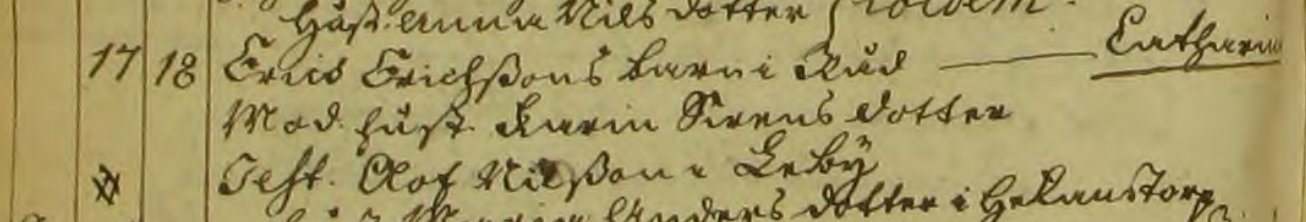 Hust. Anna Nils dotter
17 18 Erics Erichssons barn i Rud — Catharina
Mod. hust. Karin Svens dotter
Test. Olof Nilsson i Leby
Anders dotter i Hekanstorp